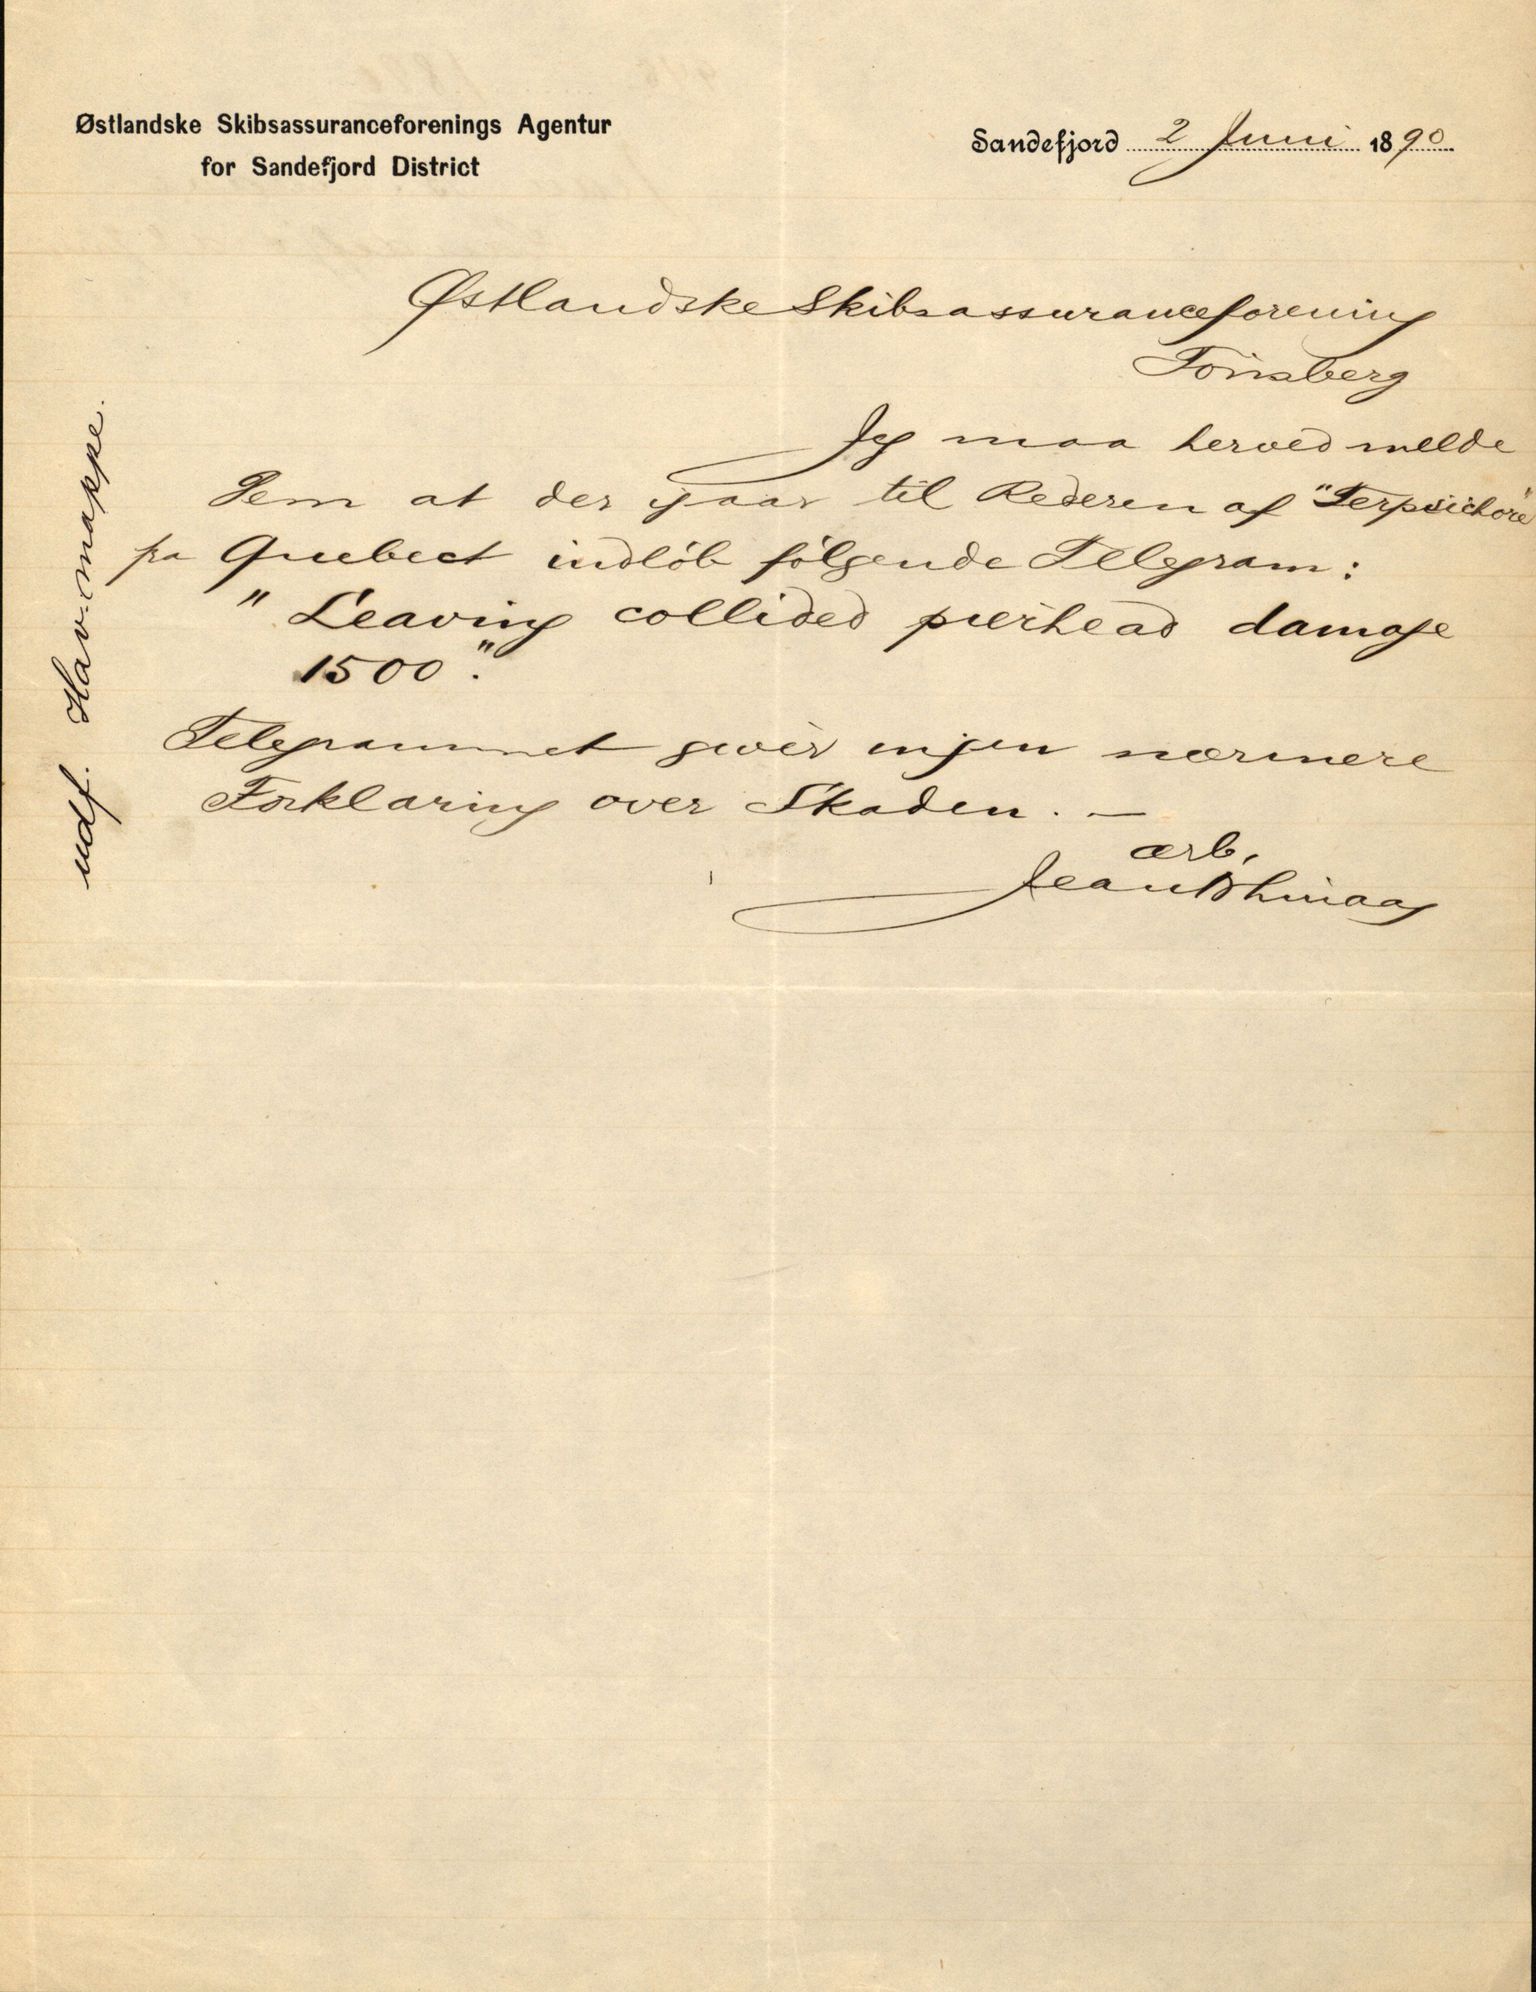 Østlandske Skibsassuranceforenings Agentur
for Sandefjord District
Sandefjord 2 Juni 1890.
Østlandske Skibsassuranceforening
Tönsberg
Jeg maa herved melde
Dem at der igaar til Rederen af "Terpsichore"
fra Quebect indlöb fölgende Telegram:
"Leaving collided pierhead damage
1500".
Telegrammet giver ingen nærmere
Forklaring over Skaden. —
ærb.
Jean
udf. Hav. mappe.